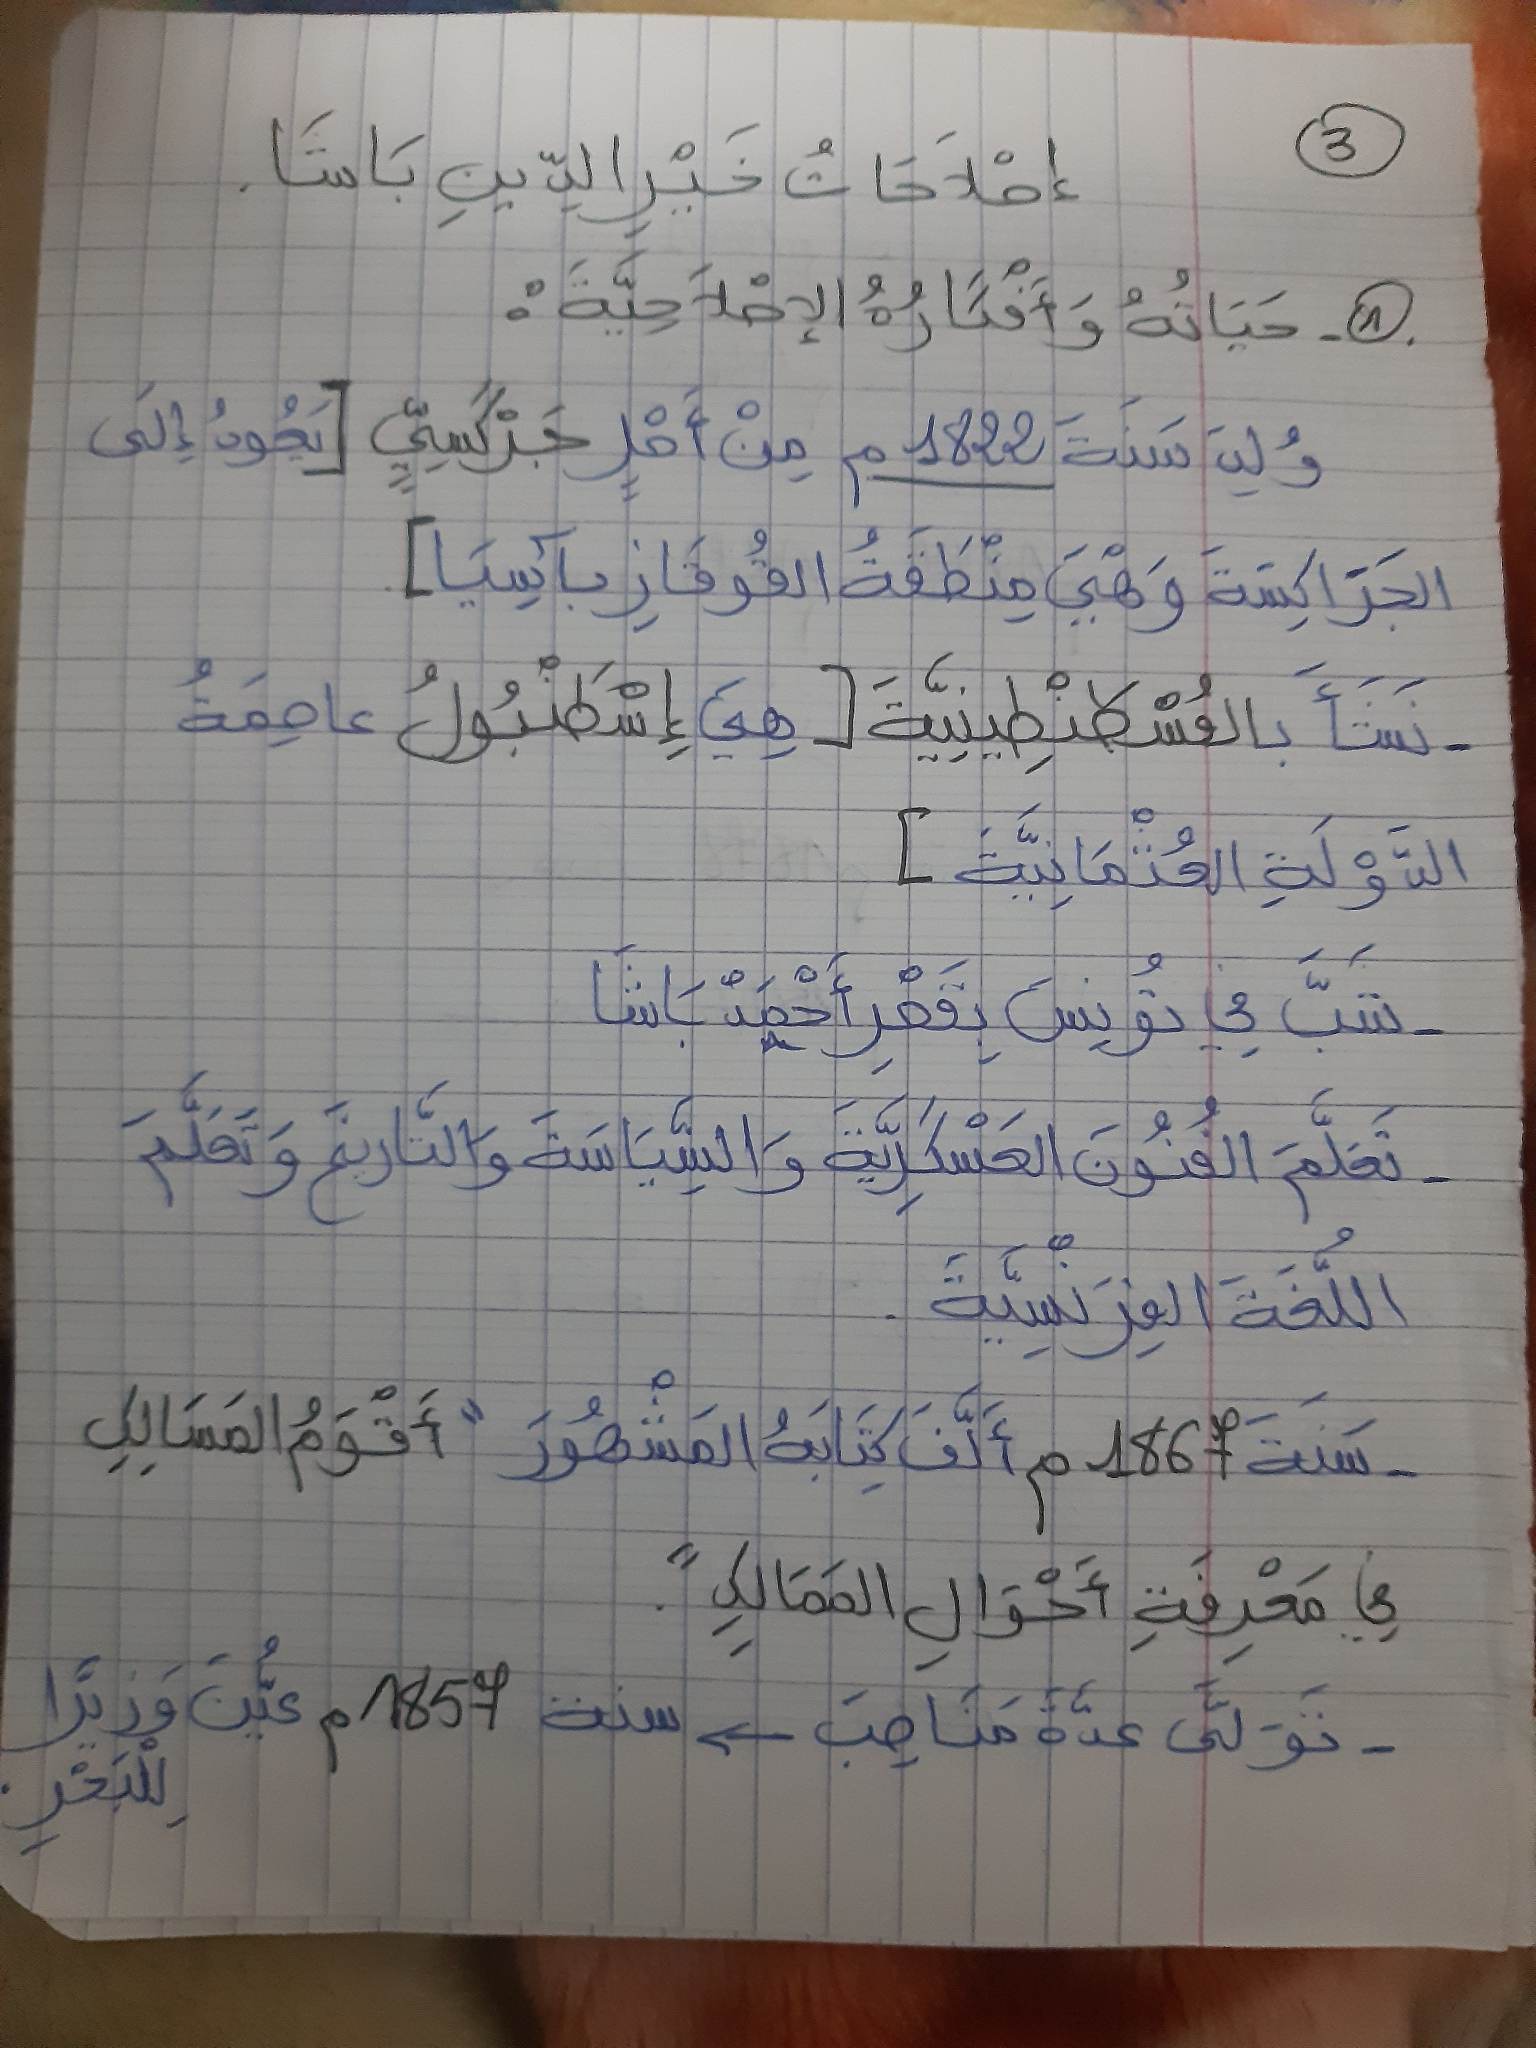 3
إِصْلَاحَاتُ خَيْرِ الدِّينِ بَاشَا.
1.- حَيَاتُهُ وَأَفْكَارُهُ الإِصْلَاحِيَّةَ :
وُلِدَ سَنَةَ 1822م مِنْ أَصْلٍ جَرْكَسِيٍّ [يَعُودُ إِلَى
الجَرَاكِسَةَ وَهْيَ مِنْطَقَةُ القُوقَازِ بِآسِيَا]
- نَشَأَ بِالقُسْطَنْطِينِيَّةَ [هِيَ إِسْطَنْبُولُ عاصِمَةُ
الدَّوْلَةِ العُثْمَانِيَّةَ]
- شَبَّ فِي تُونِسَ بِقَصْرِ أَحْمِدْ بَاشَا
- تَعَلَّمَ الفُنُونَ العَسْكَرِيَّةَ وَالسِّيَاسَةَ وَالتَّارِيخَ وَتَعَلَّمَ
اللُّغَةَ الفِرَنْسِيَّةَ .
- سَنَةَ 1867م أَلَّفَ كِتَابَهُ المَشْهُورَ "أَقْوَمُ المَسَالِكِ
فِي مَعْرِفَةِ أَحْوَالِ المَمَالِكِ".
- تَوَلَّى عِدَّةَ مَنَاصِبَ ← سنة 1857م عُيِّنَ وَزِيرًا
لِلْبَحْرِ.